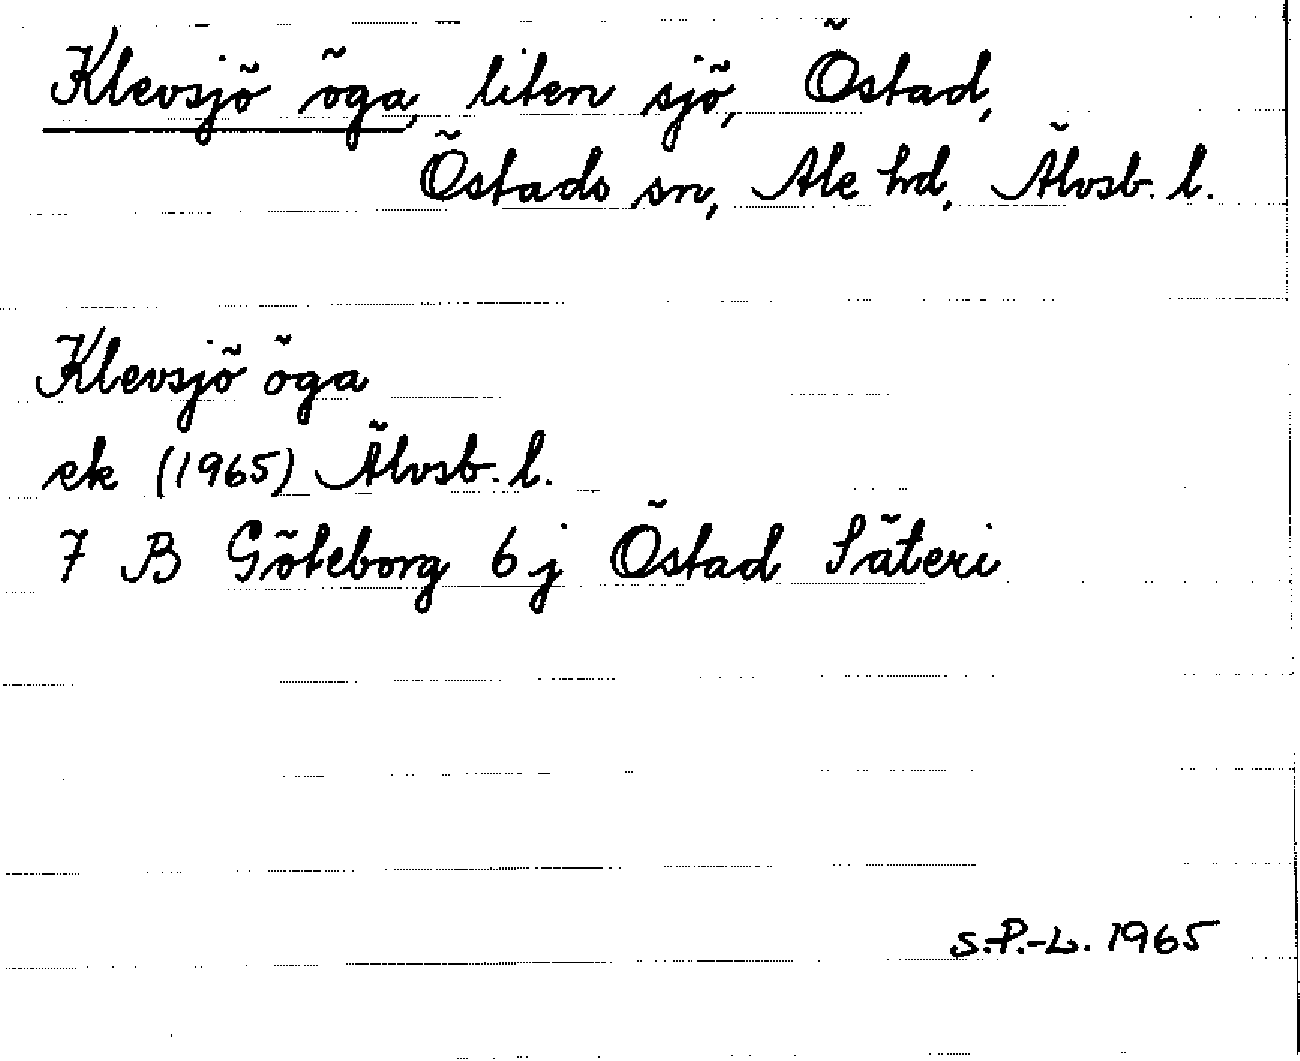 Klevsjö öga, liten sjö, Östad,
Östads sn, Ale hd, Älvsb. l.
Klevsjö öga
ek (1965) Älvsb. l.
7 B Göteborg 6 j Östad Säteri
S.-P.-L. 1965